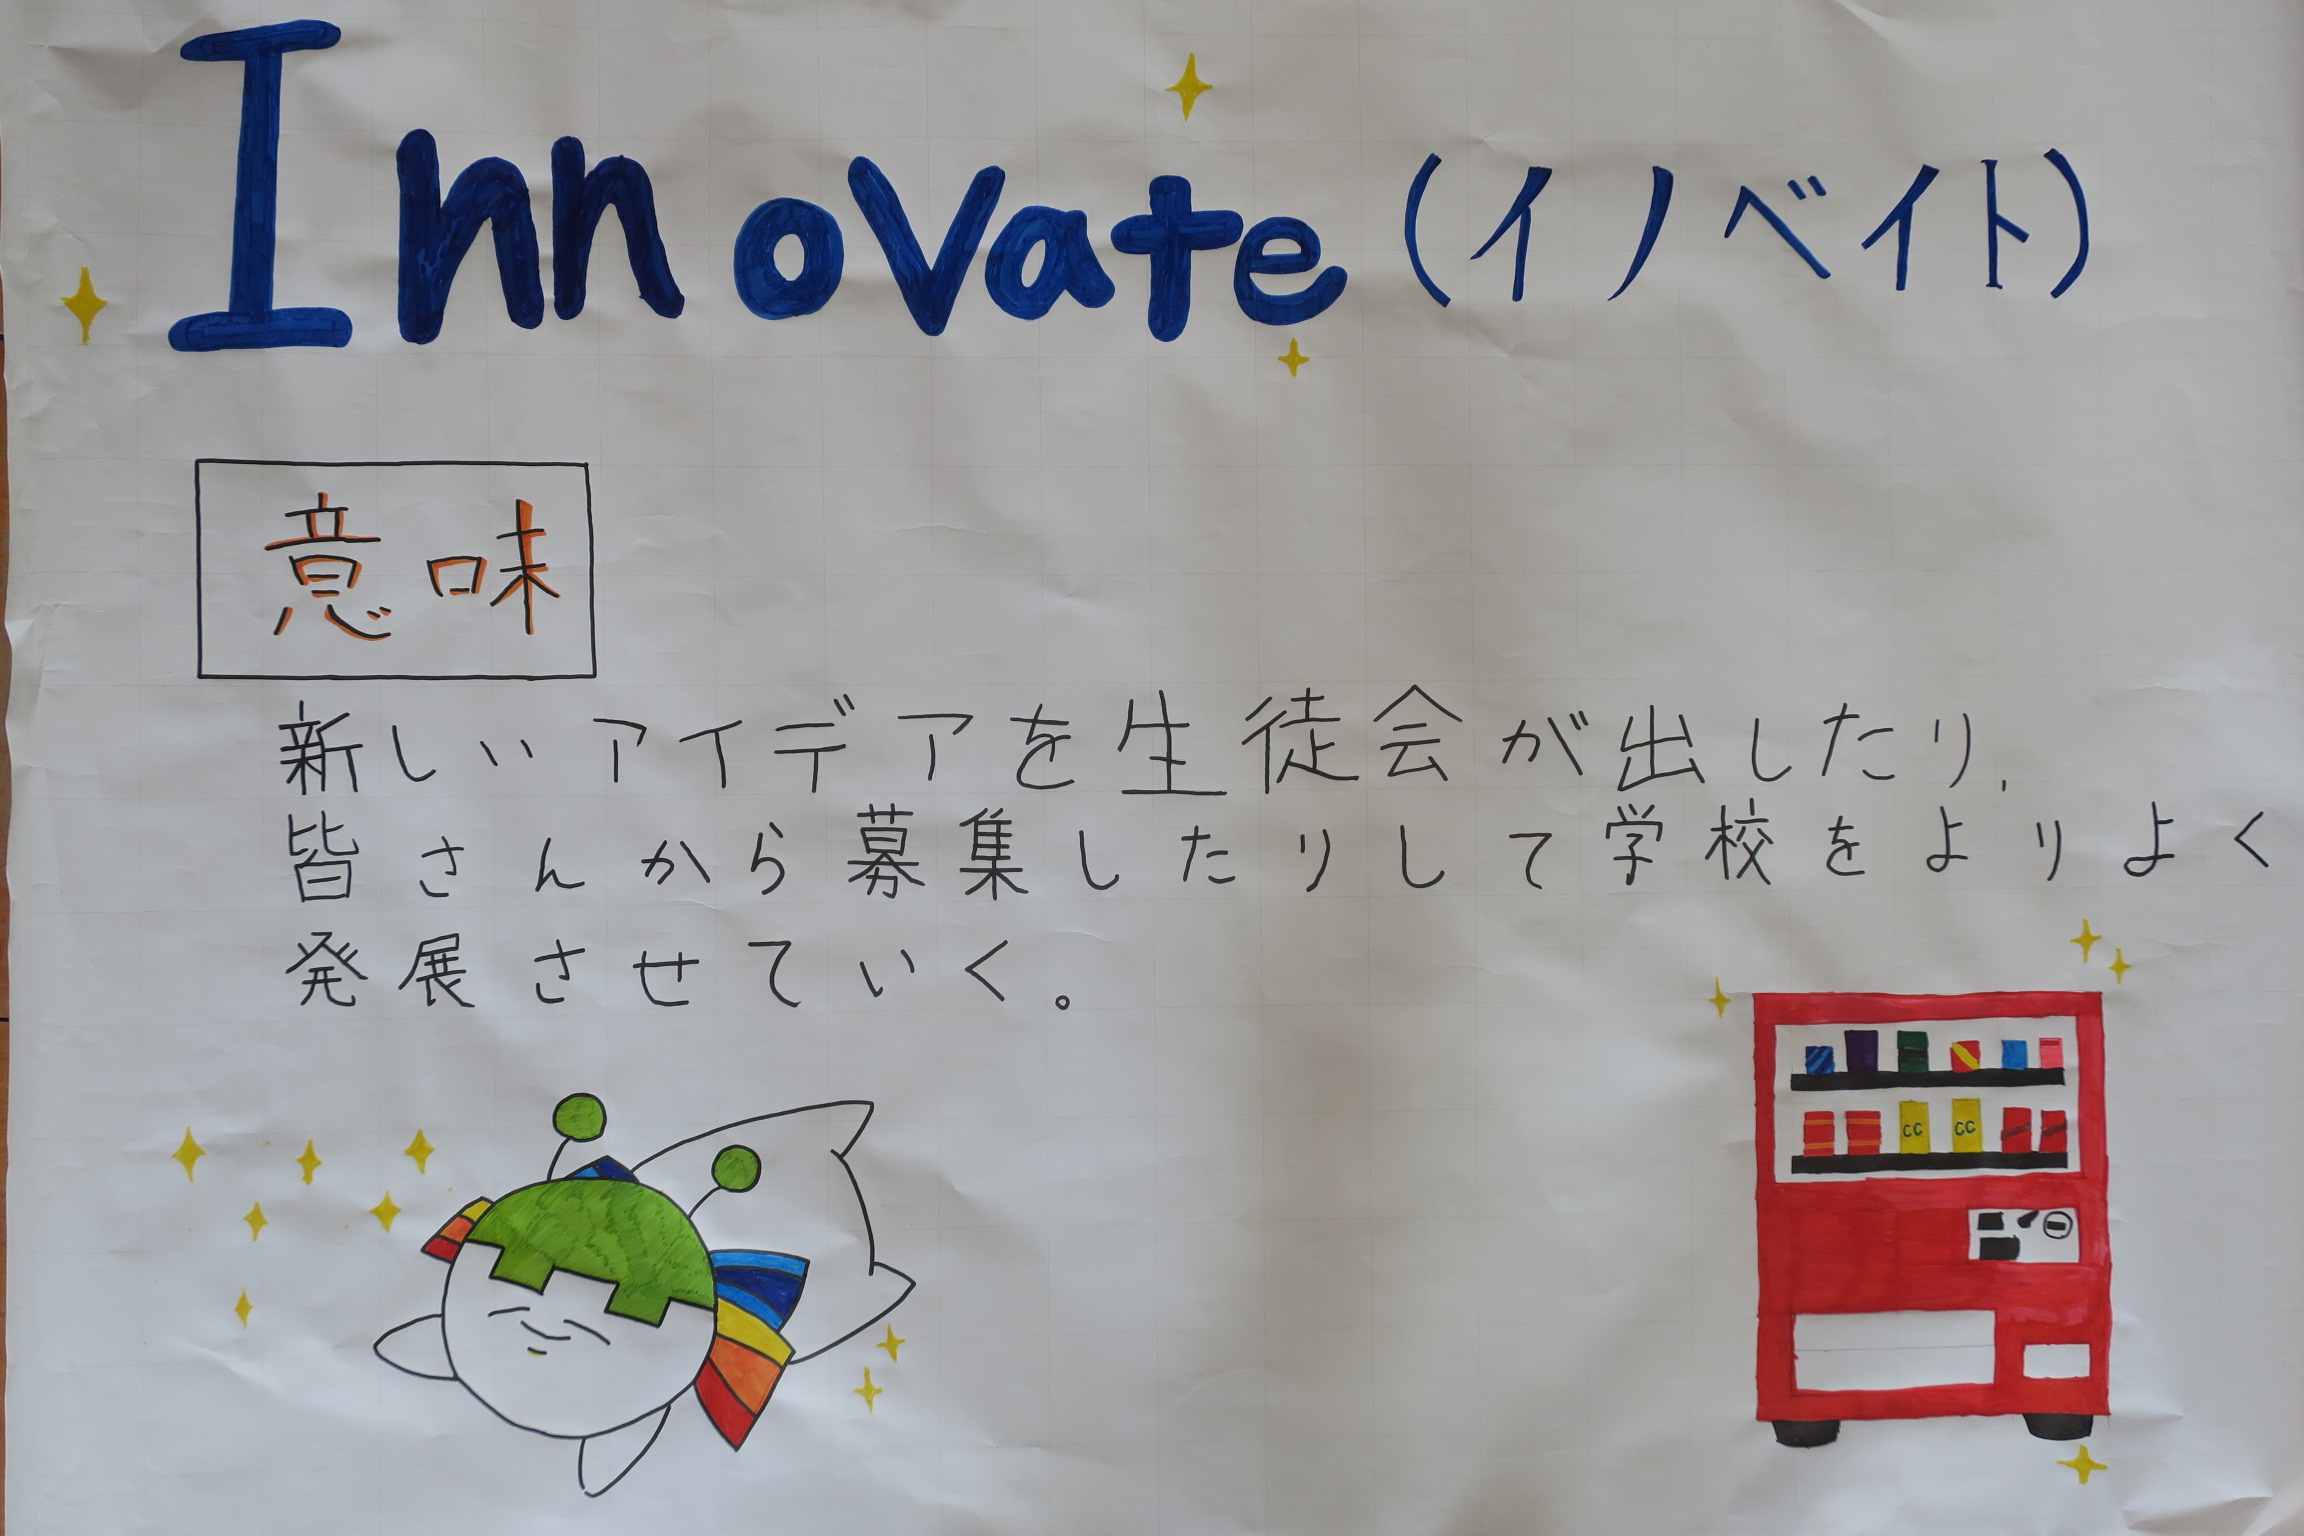 Innovate (イノベイト)
意味
新しいアイデアを生徒会が出したり、
皆さんから募集したりして学校をよりよく
発展させていく。
CC CC